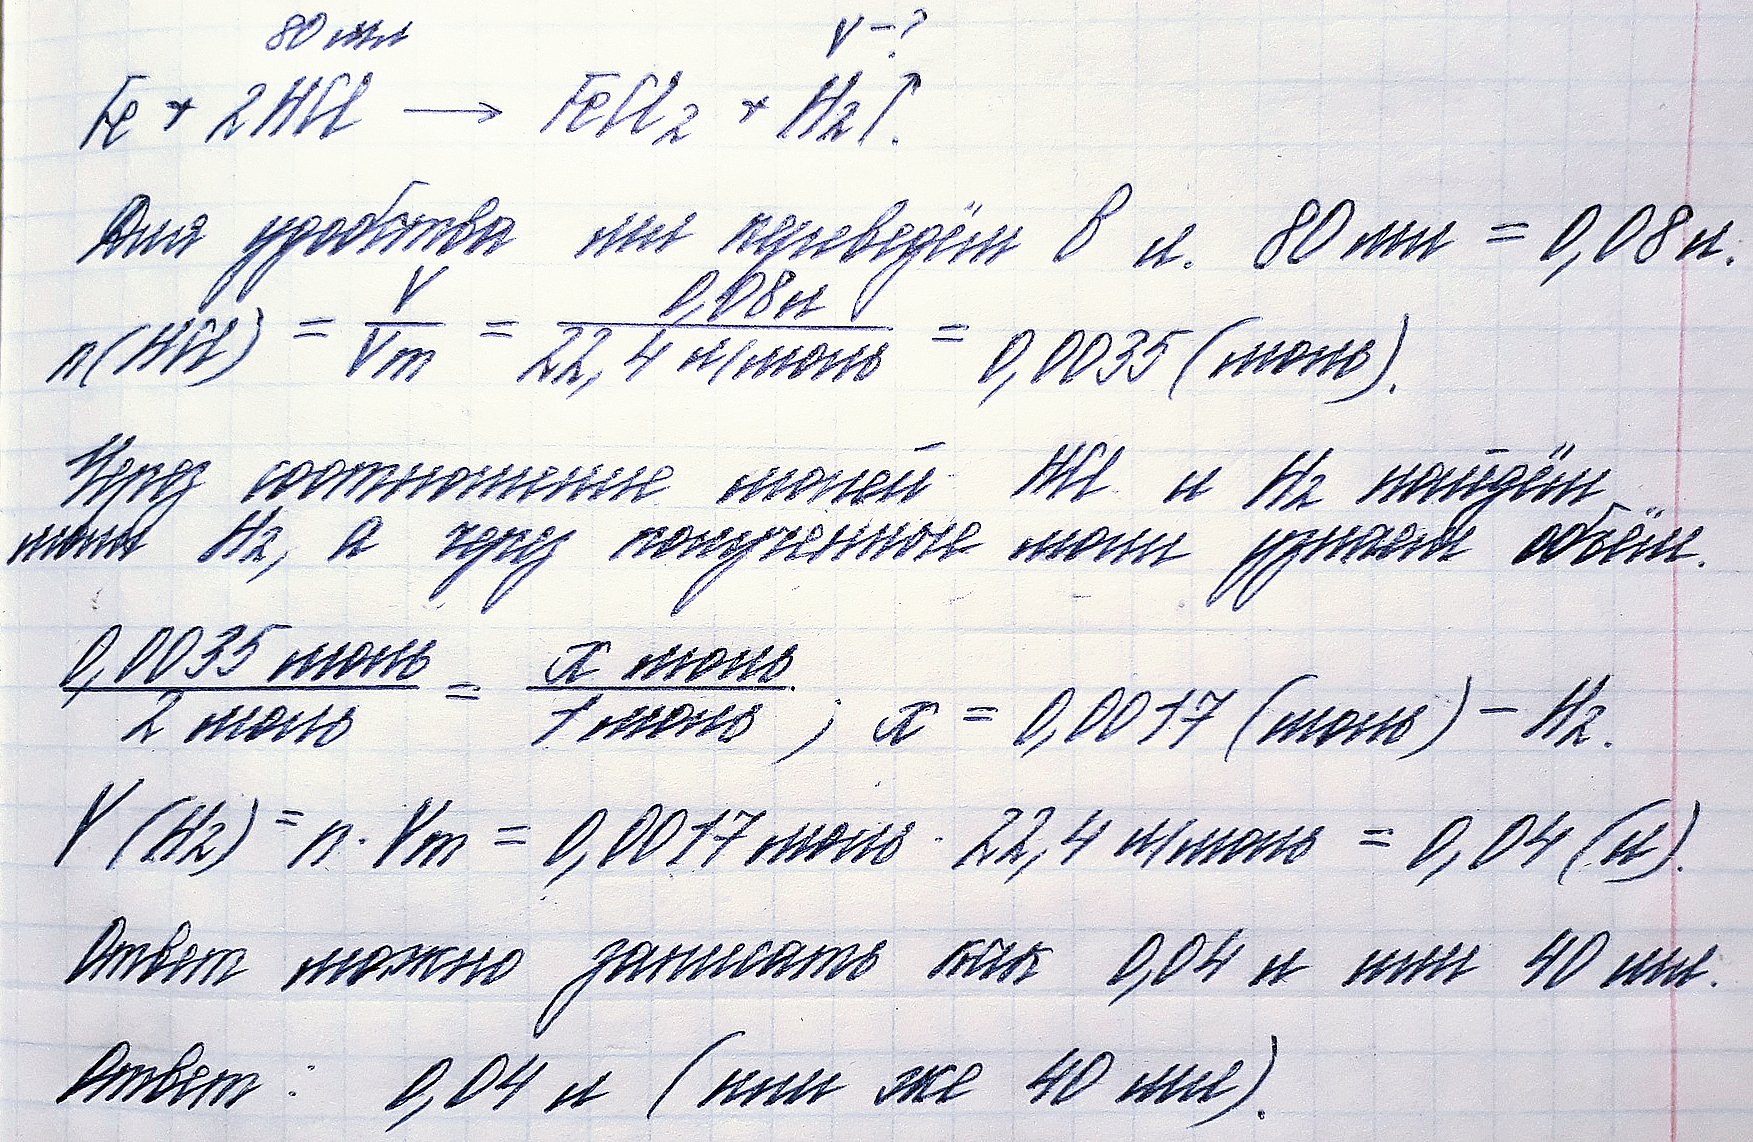 80 мл V-?
Fe + 2HCl → FeCl2 + H2↑.
Для удобства мы переведём в л. 80 мл = 0,08 л.
n(HCl) = V/Vm = 0,08 л/22,4 л/моль = 0,0035 (моль).
Через соотношение молей HCl и H2 найдём
моли H2, а через полученные моли узнаем объём.
0,0035 моль/2 моль = x моль/1 моль ; x = 0,0017 (моль) - H2.
V (H2) = n · Vm = 0,0017 моль · 22,4 л/моль = 0,04 (л).
Ответ можно записать как 0,04 л или 40 мл.
Ответ: 0,04 л (или же 40 мл).